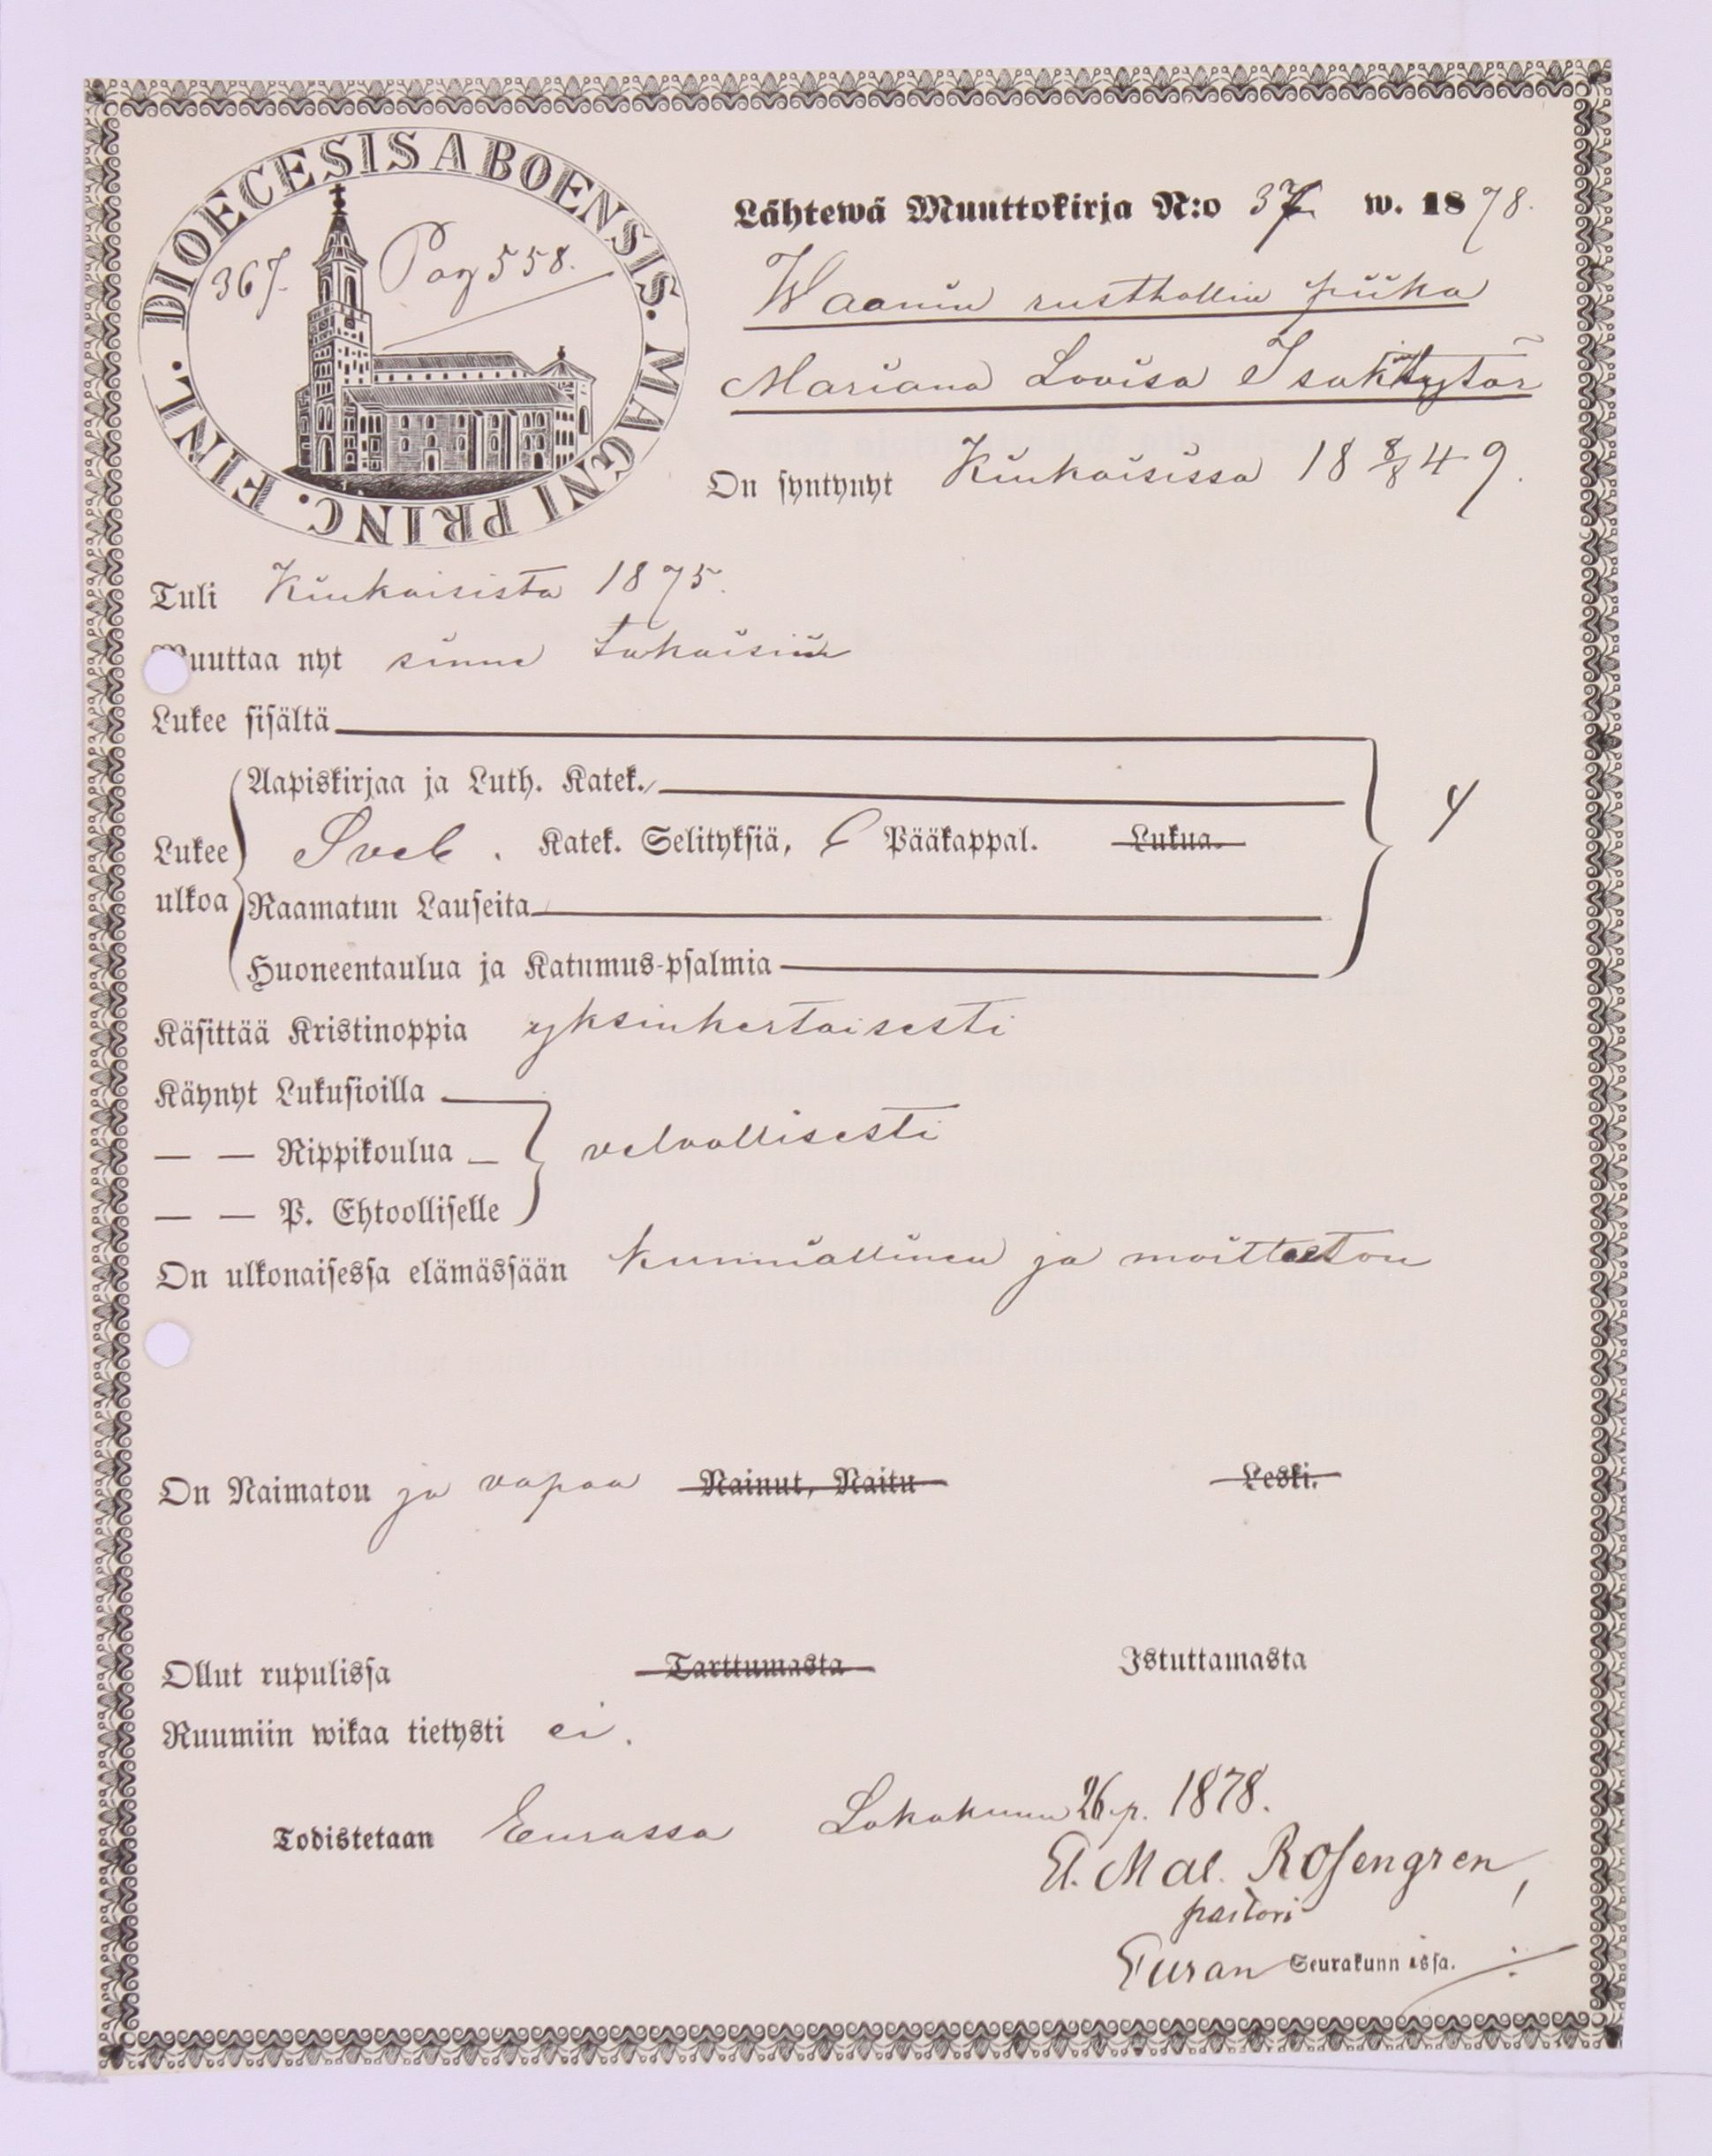 DIOECESIS ABOENSIS. MAGNI PRINC. FINL.
367. Pag 558.
Lähtewä Muuttokirja N:o 37. w. 1878.
Waanin rusthollin piika
Mariana Lovisa Isakintytär
On syntynyt Kiukaisissa 18 8/8 49.
Tuli Kiukaisista 1875.
Muuttaa nyt sinne takaisin
Lukee sisältä
Aapiskirjaa ja Luth. Katek.
Lukee ulkoa
Sveb. Katek. Selityksiä, 6 Pääkappal. Lukua.
Raamatun Lauseita
Huoneentaulua ja Katumus-psalmia
Käsittää Kristinoppia yksinkertaisesti
Käynyt Lukusioilla
— — Rippikoulua velvollisesti
— — P. Ehtoolliselle
On ulkonaisessa elämässään kunniallinen ja moitteeton
On Naimaton ja vapaa Nainut, Naitu Leski.
Ollut rupulissa Tarttumasta Istuttamasta
Ruumiin wikaa tietysti ei.
Todistetaan Eurassa Lokakuun 26 p. 1878.
Rosengren,
pastori
Euran Seurakunnissa.